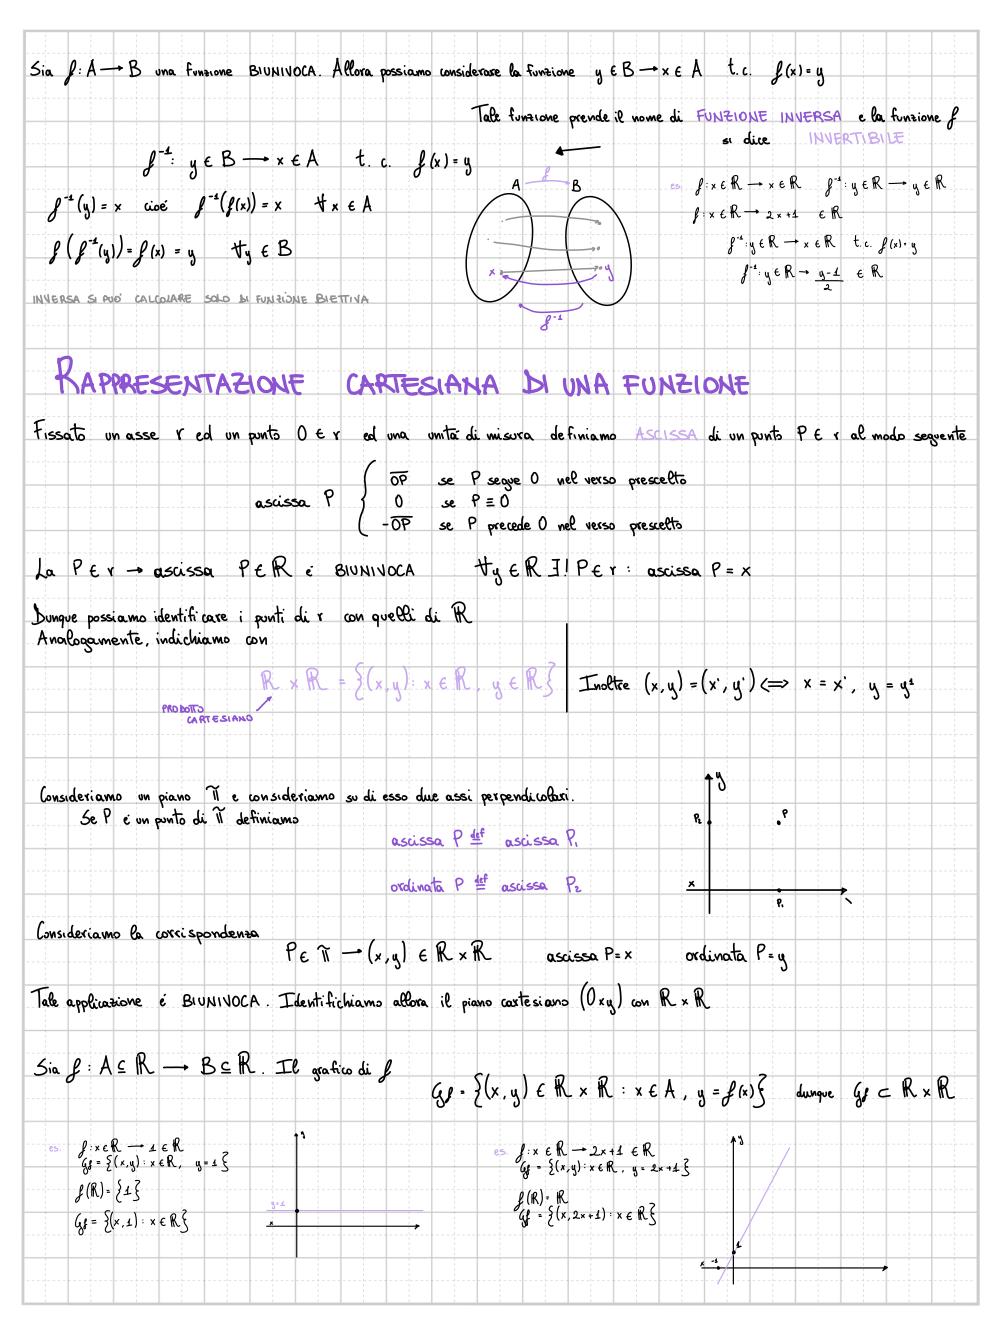 Sia f: A → B una funzione BIUNIVOCA. Allora possiamo considerare la funzione y ∈ B → x ∈ A t.c. f(x) = y
Tale funzione prende il nome di FUNZIONE INVERSA e la funzione f
si dice INVERTIBILE
f⁻¹: y ∈ B → x ∈ A t. c. f(x) = y
f⁻¹(y) = x cioé f⁻¹(f(x)) = x ∀ x ∈ A
f(f⁻¹(y)) = f(x) = y ∀y ∈ B
INVERSA SI PUO' CALCOLARE SOLO DI FUNZIONE BIETTIVA
f
A B
x y
f⁻¹
es. f: x ∈ ℝ → x ∈ ℝ f⁻¹: y ∈ ℝ → y ∈ ℝ
f: x ∈ ℝ → 2x+1 ∈ ℝ
f⁻¹: y ∈ ℝ → x ∈ ℝ t.c. f(x) = y
f⁻¹: y ∈ ℝ → (y-1)/2 ∈ ℝ
RAPPRESENTAZIONE CARTESIANA DI UNA FUNZIONE
Fissato un asse r ed un punto O ∈ r ed una unitá di misura definiamo ASCISSA di un punto P ∈ r al modo seguente
ascissa P {
OP̅ se P segue O nel verso prescelto
0 se P ≡ O
-OP̅ se P precede O nel verso prescelto
La P ∈ r → ascissa P ∈ ℝ é BIUNIVOCA ∀y ∈ ℝ ∃! P ∈ r : ascissa P = x
Dunque possiamo identificare i punti di r con quelli di ℝ
Analogamente, indichiamo con
ℝ × ℝ = {(x,y): x ∈ ℝ, y ∈ ℝ}
PRODOTTO
CARTESIANO
Inoltre (x,y) = (x',y') ⟺ x = x', y = y'
Consideriamo un piano π e consideriamo su di esso due assi perpendicolari.
Se P é un punto di π definiamo
ascissa P ≝ ascissa P₁
ordinata P ≝ ascissa P₂
y
P₂ P
x
P₁
Consideriamo la corrispondenza
P ∈ π → (x,y) ∈ ℝ × ℝ ascissa P = x ordinata P = y
Tale applicazione é BIUNIVOCA. Identifichiamo allora il piano cartesiano (Oxy) con ℝ × ℝ
Sia f: A ⊆ ℝ → B ⊆ ℝ. Il grafico di f
Gf = {(x,y) ∈ ℝ × ℝ : x ∈ A, y = f(x)} dunque Gf ⊂ ℝ × ℝ
es. f: x ∈ ℝ → 1 ∈ ℝ
Gf = {(x,y): x ∈ ℝ, y = 1}
f(ℝ) = {1}
Gf = {(x,1): x ∈ ℝ}
y
y=1
x
es. f: x ∈ ℝ → 2x+1 ∈ ℝ
Gf = {(x,y): x ∈ ℝ, y = 2x+1}
f(ℝ) = ℝ
Gf = {(x,2x+1): x ∈ ℝ}
y
1
x -1